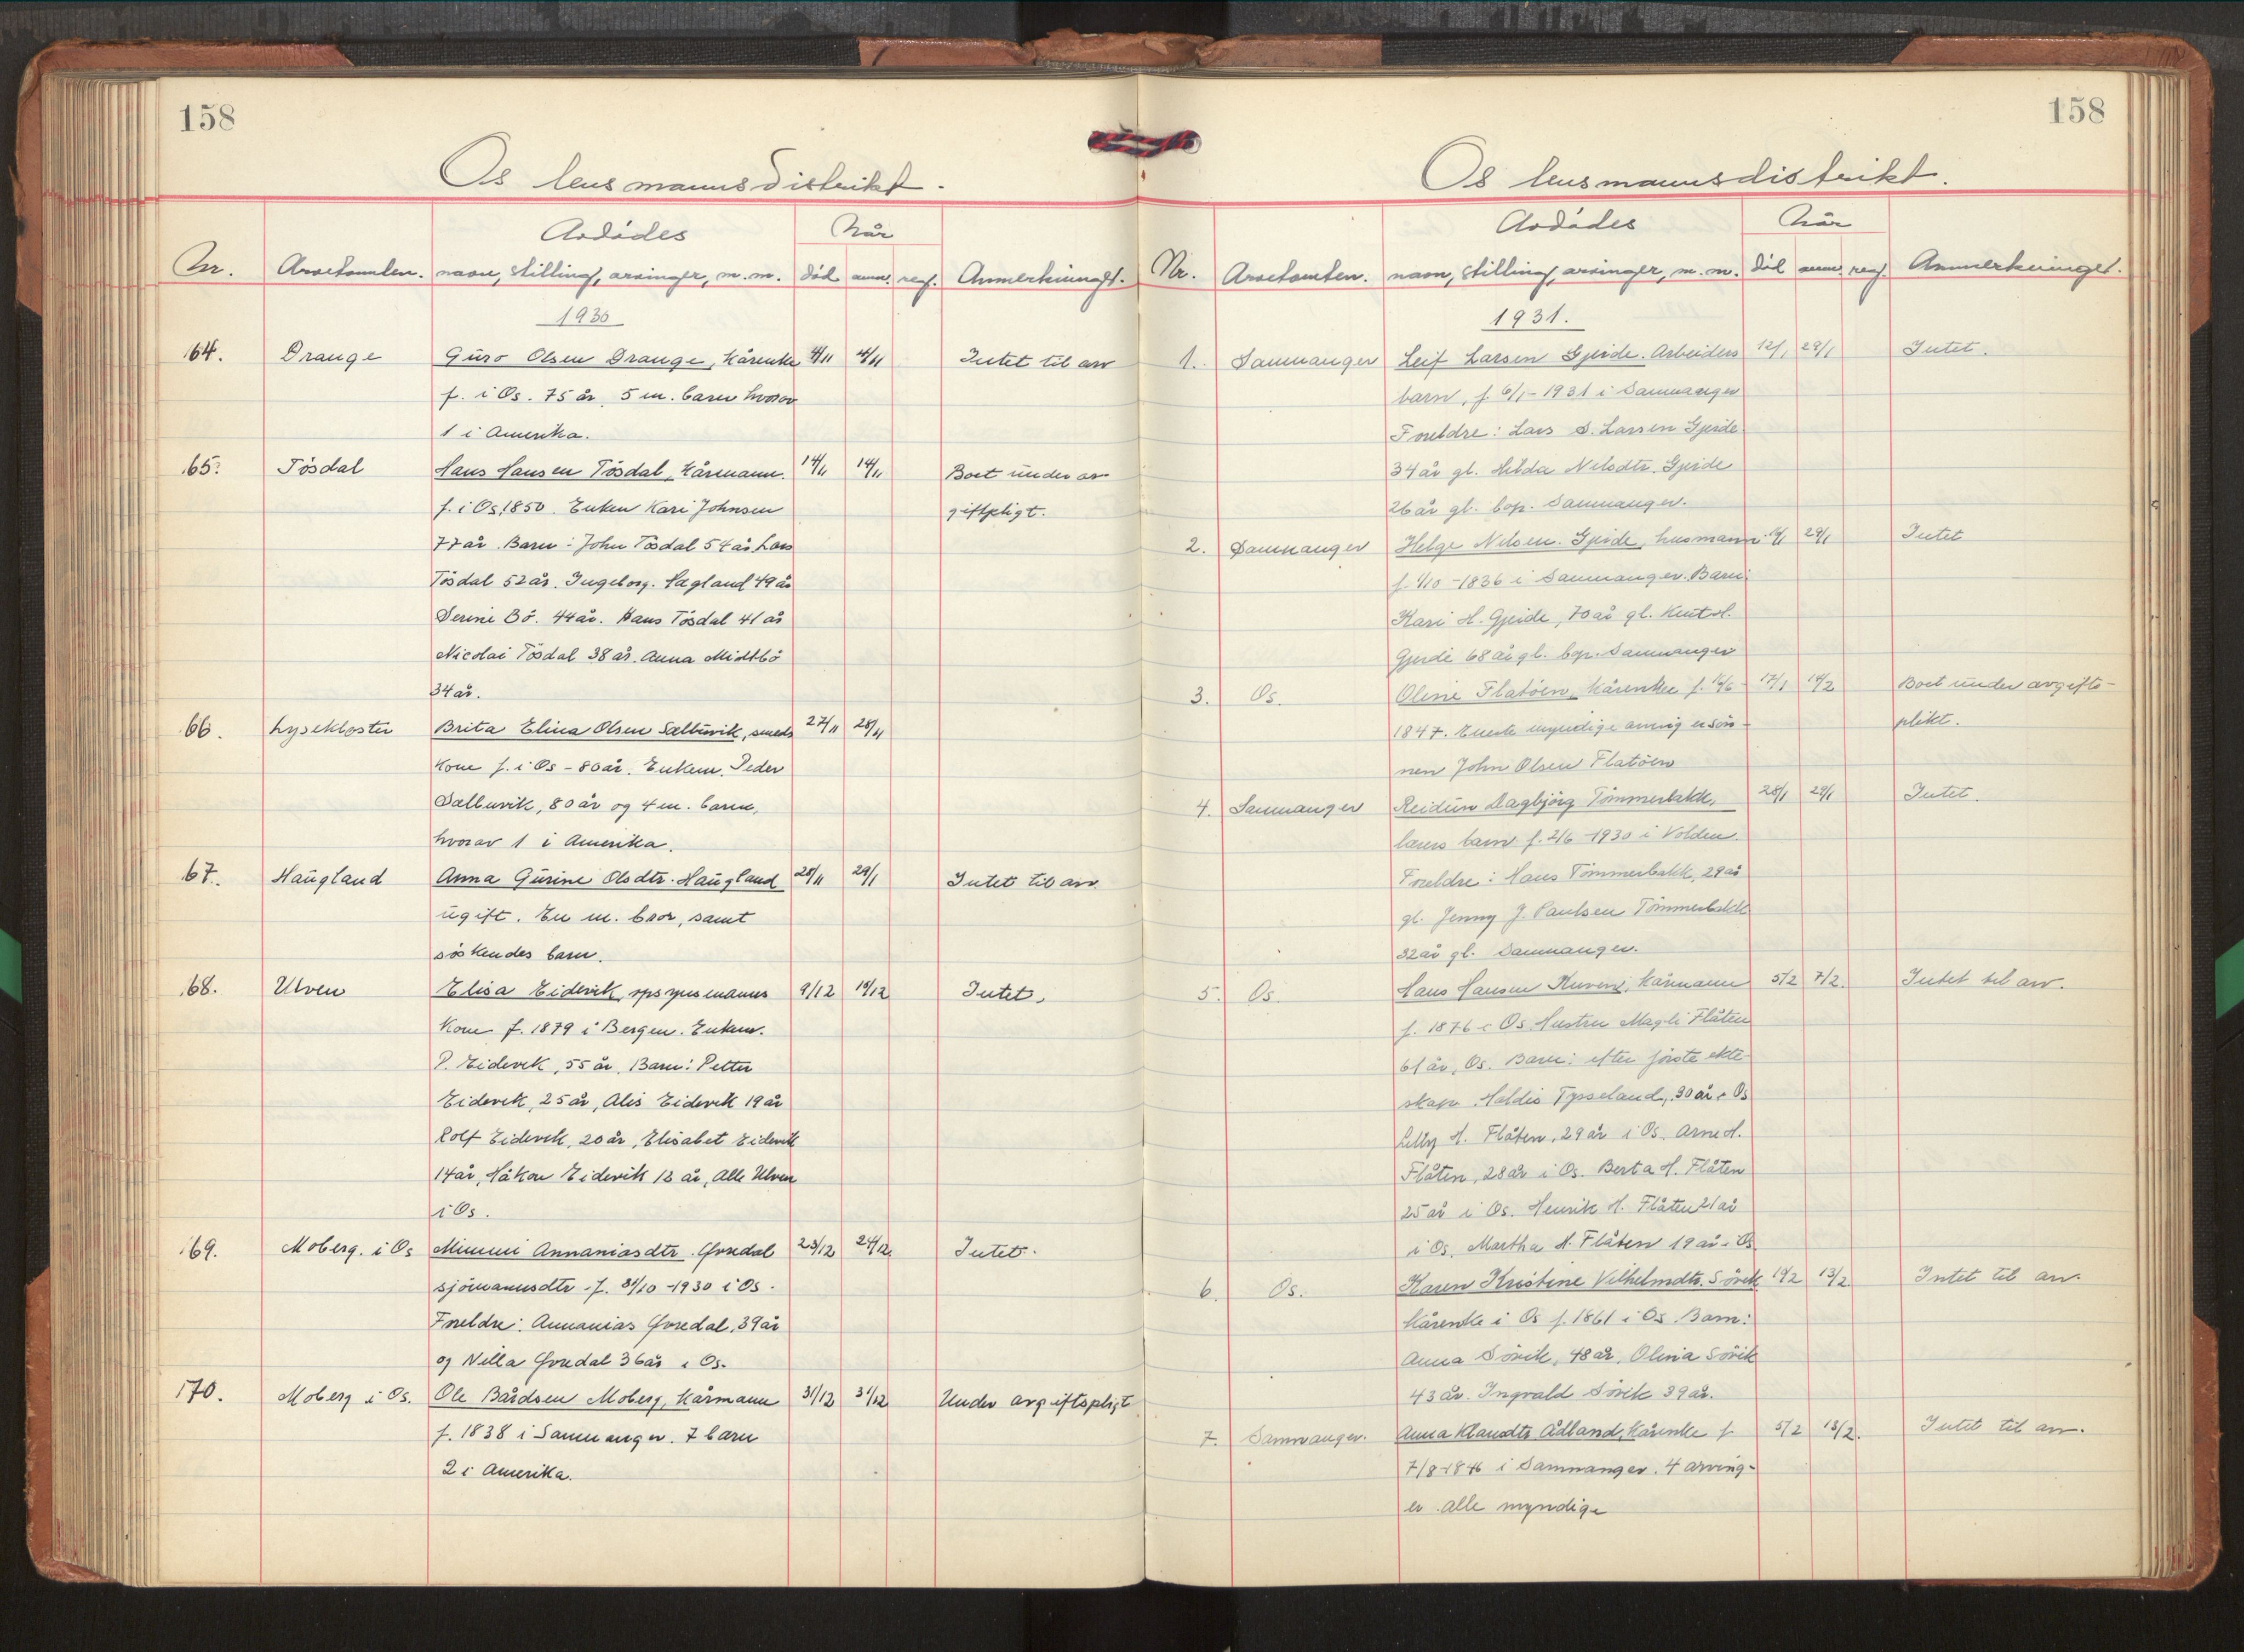 158
Os lensmannsdistrikt.
Avdødes
Når
Nr. Avsetomten. navn, stilling, arvinger, m.m. död anm. reg. Anmerkninger.
1930
164. Drange Guro Olsen Drange, Kårenke 4/11 4/11 Intet til arv
f. i Os. 75 år. 5 m. barn hvorav
1 i Amerika.
165. Tösdal Hans Hansen Tösdal, Kårmann. 14/11 14/11 Boet under av-
f. i Os, 1850. Enken Kari Johnsen giftpligt.
77 år. Barn: John Tösdal 54 år. Lars
Tösdal 52 år. Ingeborg. Hagland 49 år
Serine Bö. 44 år. Hans Tösdal 41 år
Nicolai Tösdal 38 år. Anna Midtbö
34 år.
166. Lysekloster Brita Elina Olsen Sælbuvik, smeds 27/11 28/11
kone f. i Os - 80 år. Enkem. Peder
Sælbuvik, 80 år og 4 m. barn,
hvorav 1 i Amerika.
167. Haugland Anna Gurine Olsdtr. Haugland 28/11 29/1 Intet til arv.
ugift. En m. bror, samt
söskendes barn.
168. Ulven Elisa Eidevik 9/12 19/12 Intet.
Kone f. 1879 i Bergen. Enkem.
P. Eidevik, 55 år, Barn: Petter
Eidevik, 25 år, Alis Eidevik 19 år
Rolf Eidevik, 20 år, Elisabet Eidevik
14 år, Håkon Eidevik 12 år, Alle Ulven
i Os.
169. Moberg. i Os Mimmi Annaniasdtr. 23/12 24/12. Intet.
sjömannsdtr. f. 31/10 -1930 i Os.
Foreldre: Annanias 39 år
og Nilla 36 år i Os.
170. Moberg i Os. Ole Bårdsen Moberg, Kårmann 31/12 31/12 Under avgiftspligt
f. 1838 i Samnanger. 7 barn
2 i Amerika.
158
Os lensmannsdistrikt.
Avdødes
Når
Nr. Avsetomten. navn, stilling, arvinger, m.m. Död anm. reg. Anmerkninger.
1931.
1. Samnanger Leif Larsen Gjeide. Arbeiders 12/1 29/1 Intet.
barn, f. 6/1 - 1931 i Samnanger
Foreldre: Lars S. Larsen Gjeide
34 år gl. Hilda Nilsdtr. Gjeide
26 år gl. bop. Samnanger.
2. Samnanger Helge Nilsen. Gjeide, husmann 29/1 Intet
f. 1/10 -1836 i Samnanger. Barn:
Kari H. Gjeide, 70 år gl. Knut H.
Gjeide 68 år gl. bop. Samnanger
3. Os. Oline Flatöen, Kårenke f. 17/1 14/2 Boet under avgifts-
1847. Eneste myndige arving er sön- plikt.
nen John Olsen Flatöen
4. Samnanger Reidun Dagbjörg Tömmerbakk, 28/1 29/1 Intet.
lærers barn f. 2/6 -1930 i Volden.
Foreldre: Hans Tömmerbakk, 29 år
gl. Jenny J. Paulsen Tömmerbakk
32 år gl. Samnanger.
5. Os. Hans Hansen Kårmann 5/2 7/2. Intet til arv.
f. 1876 i Os. Hustru Magli Flåten
61 år, Os. Barn: efter förste ekte-
skap. Haldis Tysseland, 30 år i Os
Lilly H. Flåten, 29 år i Os. Arne H.
Flåten, 28 år i Os. Berta H. Flåten
25 år i Os. Henrik H. Flåten 21 år
i Os. Martha H. Flåten 19 år i Os
6. Os. Karen Kristine Vilhelmdtr. Sövik 13/2. Intet til arv.
Kårenke i Os f. 1861 i Os. Barn:
Anna Sövik, 48 år, Olivia Sövik
43 år. Ingvald Sövik 39 år.
7. Samnanger. Anna Ådland, Kårenke f. 5/2 13/2. Intet til arv.
7/8 i Samnanger. 4 arving-
er. alle myndige